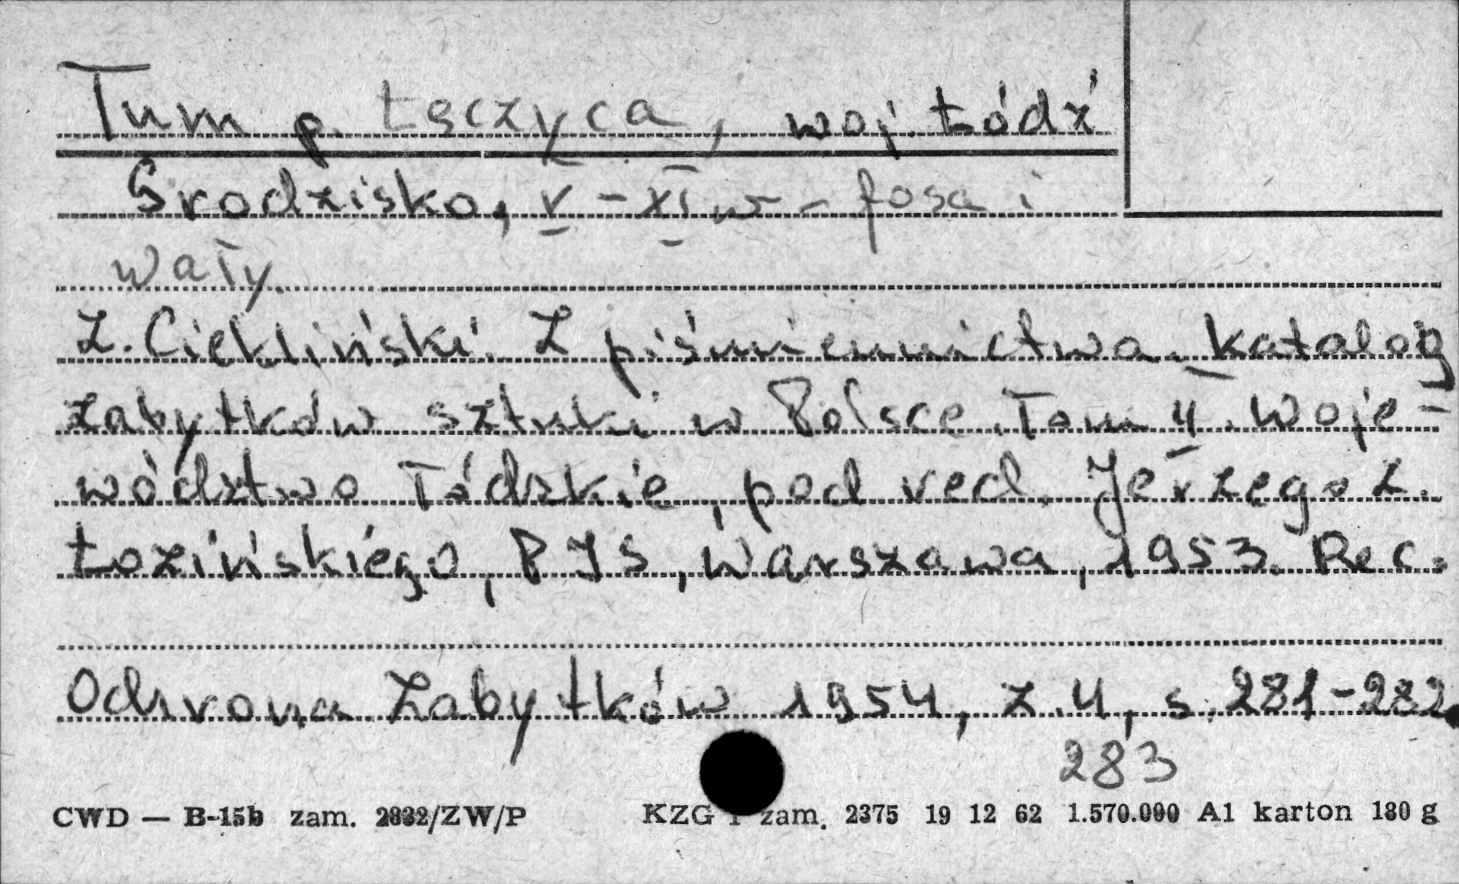 Tum p. Łęczyca, woj. Łódź
Grodzisko, V - XI w - fosa i
wały.
Z. Ciekliński. Z piśmiennictwa. Katalog
zabytków sztuki w Polsce. Tom II. Woje-
wództwo łódzkie, pod red. Jerzego Z.
Łozińskiego, PIS, Warszawa, 1953. Rec.
Ochrona Zabytków 1954, z.4, s. 281-282
283
CWD — B-15b zam. 2832/ZW/P KZG 1 zam. 2375 19 12 62 1.570.000 A1 karton 180 g